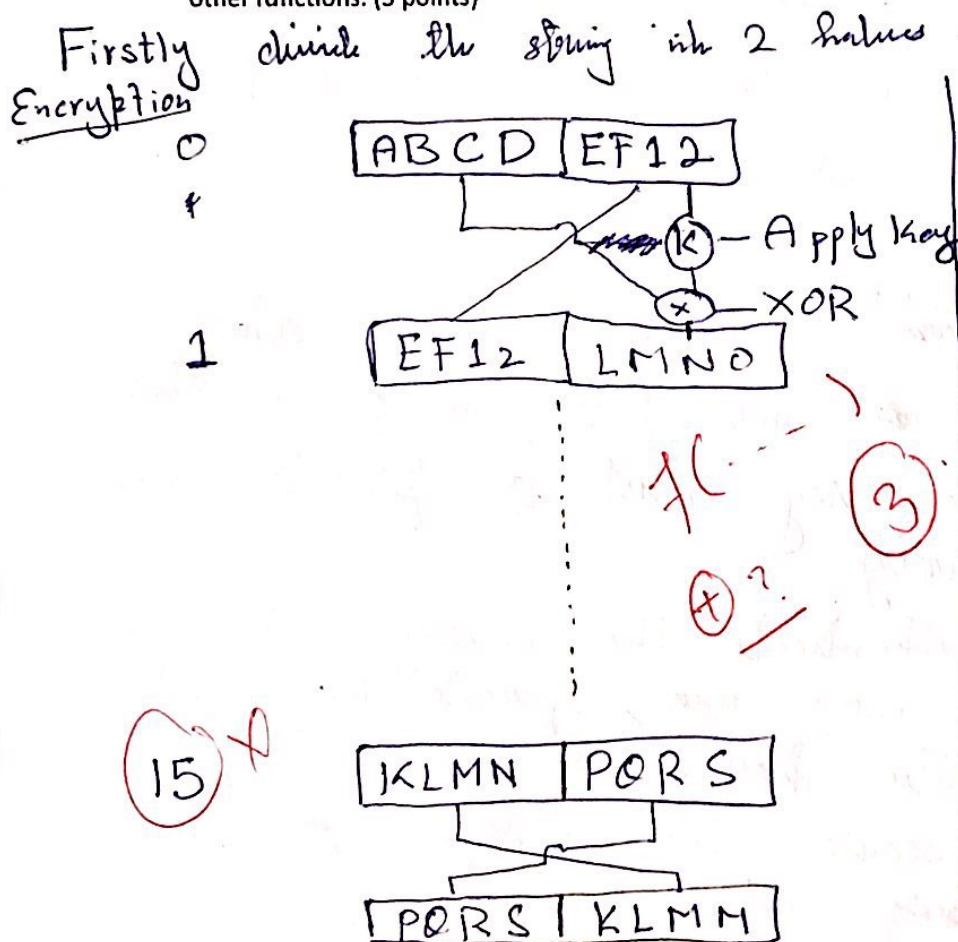 other functions. (5 points)
Firstly divide the string in 2 halves
Encryption
0 ABCD EF12
K - Apply Key
x - XOR
1 EF12 LMNO
f(
3
+ ?
15 x KLMN PQRS
PQRS KLMM